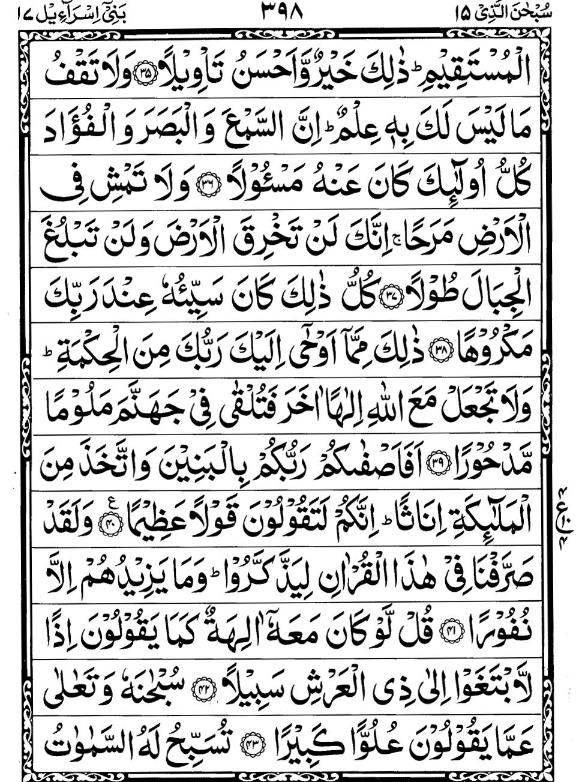 سُبْحٰنَ الَّذِیْۤ ۱۵ ۳۹۸ بَنِیْۤ اِسْرَآءِیْل ۱۷
الْمُسْتَقِیْمِ ؕ ذٰلِكَ خَیْرٌ وَّاَحْسَنُ تَاْوِیْلًا ﴿۳۵﴾ وَلَا تَقْفُ
مَا لَیْسَ لَكَ بِهٖ عِلْمٌ ؕ اِنَّ السَّمْعَ وَالْبَصَرَ وَالْفُؤَادَ
كُلُّ اُولٰٓئِكَ كَانَ عَنْهُ مَسْـُٔوْلًا ﴿۳۶﴾ وَلَا تَمْشِ فِی
الْاَرْضِ مَرَحًا ۚ اِنَّكَ لَنْ تَخْرِقَ الْاَرْضَ وَلَنْ تَبْلُغَ
الْجِبَالَ طُوْلًا ﴿۳۷﴾ كُلُّ ذٰلِكَ كَانَ سَیِّئُهٗ عِنْدَ رَبِّكَ
مَكْرُوْهًا ﴿۳۸﴾ ذٰلِكَ مِمَّاۤ اَوْحٰۤی اِلَیْكَ رَبُّكَ مِنَ الْحِكْمَةِ ؕ
وَلَا تَجْعَلْ مَعَ اللّٰهِ اِلٰهًا اٰخَرَ فَتُلْقٰی فِیْ جَهَنَّمَ مَلُوْمًا
مَّدْحُوْرًا ﴿۳۹﴾ اَفَاَصْفٰىكُمْ رَبُّكُمْ بِالْبَنِیْنَ وَاتَّخَذَ مِنَ
الْمَلٰٓئِكَةِ اِنَاثًا ؕ اِنَّكُمْ لَتَقُوْلُوْنَ قَوْلًا عَظِیْمًا ﴿۴۰﴾ ع وَلَقَدْ
۴ ع ۱۰ ۴
صَرَّفْنَا فِیْ هٰذَا الْقُرْاٰنِ لِیَذَّكَّرُوْا ؕ وَمَا یَزِیْدُهُمْ اِلَّا
نُفُوْرًا ﴿۴۱﴾ قُلْ لَّوْ كَانَ مَعَهٗۤ اٰلِهَةٌ كَمَا یَقُوْلُوْنَ اِذًا
لَّابْتَغَوْا اِلٰی ذِی الْعَرْشِ سَبِیْلًا ﴿۴۲﴾ سُبْحٰنَهٗ وَتَعٰلٰی
عَمَّا یَقُوْلُوْنَ عُلُوًّا كَبِیْرًا ﴿۴۳﴾ تُسَبِّحُ لَهُ السَّمٰوٰتُ